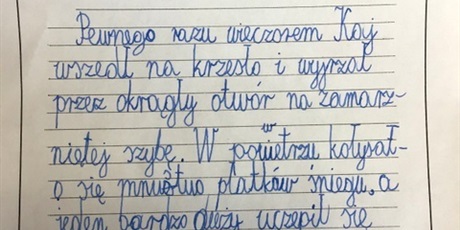 Pewnego razu wieczorem Kaj
wszedł na krzesło i wyjrzał
przez okrągły otwór na zamarz-
niętej szybę. W powietrzu kołysał-
o się mnóstwo płatków śniegu, a
jeden bardzo duży uczepił się